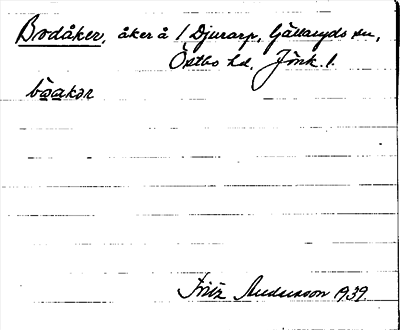 Bodåker, åker å 1 Djurarp, Gällaryds sn,
Östbo hd, Jönk. l.
båakər
Fritz Andersson 1939.